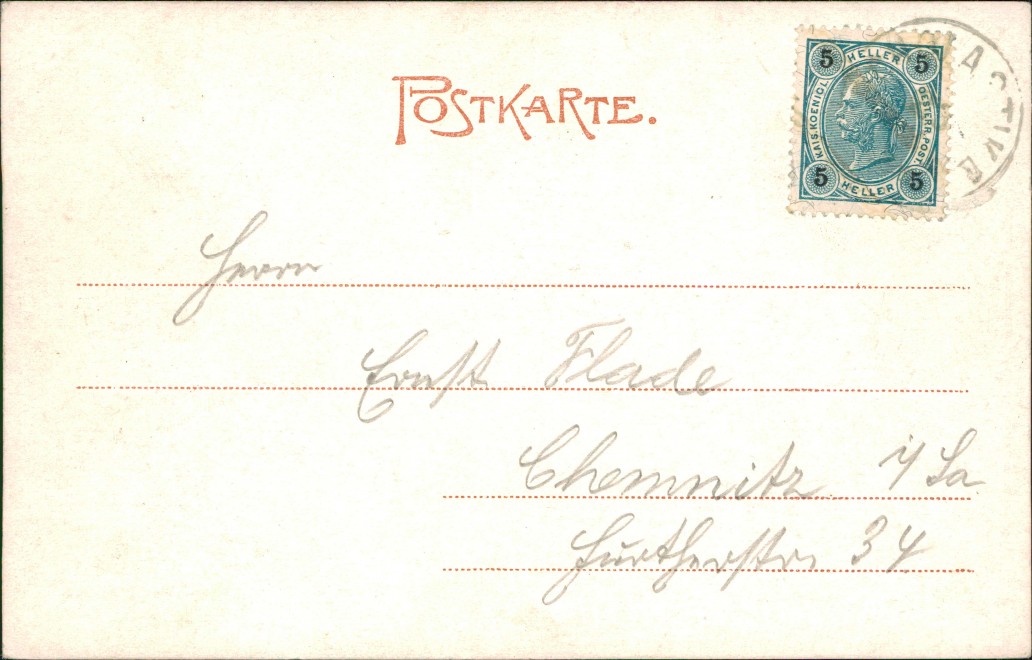 POSTKARTE.
5 HELLER 5
KAIS. KOENIGL. OESTERR. POST.
5 HELLER 5
Herrn
Ernst Flade
Chemnitz i/Sa
Furtherstr. 34